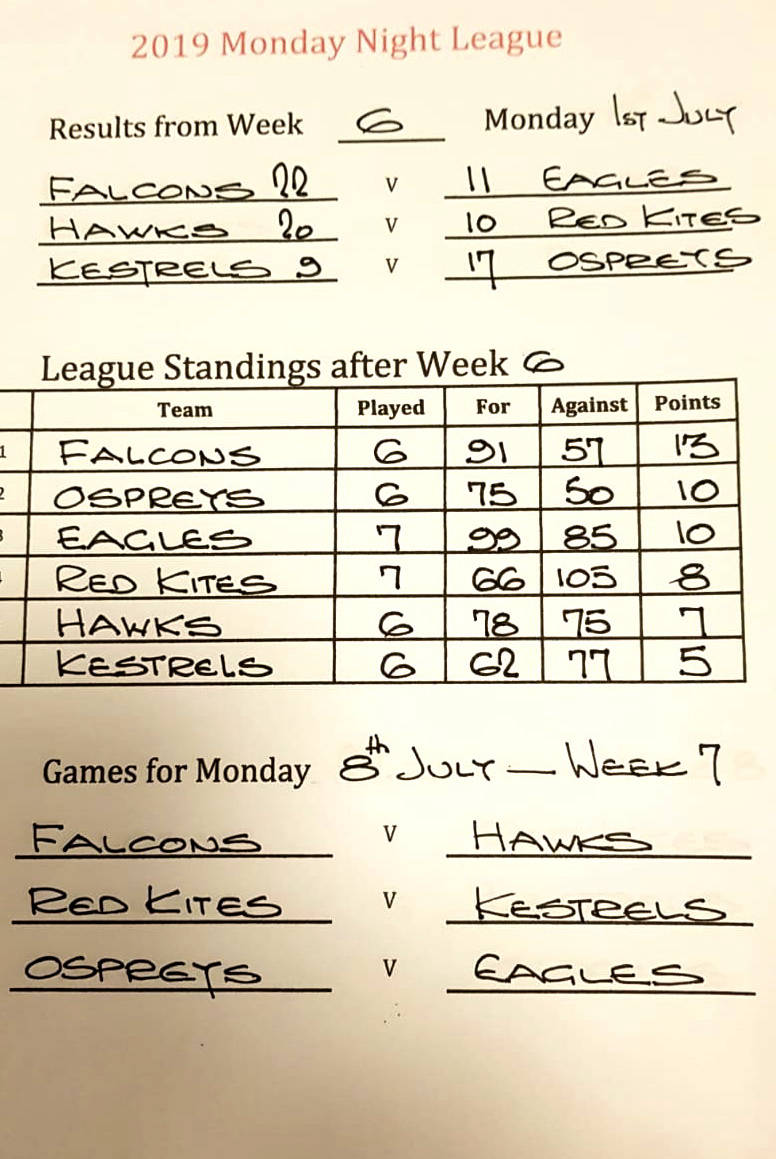 2019 Monday Night League
Results from Week 6 Monday 1ST JULY
FALCONS 22 v 11 EAGLES
HAWKS 20 v 10 RED KITES
KESTRELS 9 v 17 OSPREYS
League Standings after Week 6
Team Played For Against Points
1 FALCONS 6 91 57 13
2 OSPREYS 6 75 50 10
3 EAGLES 7 99 85 10
RED KITES 7 66 105 8
HAWKS 6 78 75 7
KESTRELS 6 62 77 5
Games for Monday 8th JULY — WEEK 7
FALCONS v HAWKS
RED KITES v KESTRELS
OSPREYS v EAGLES